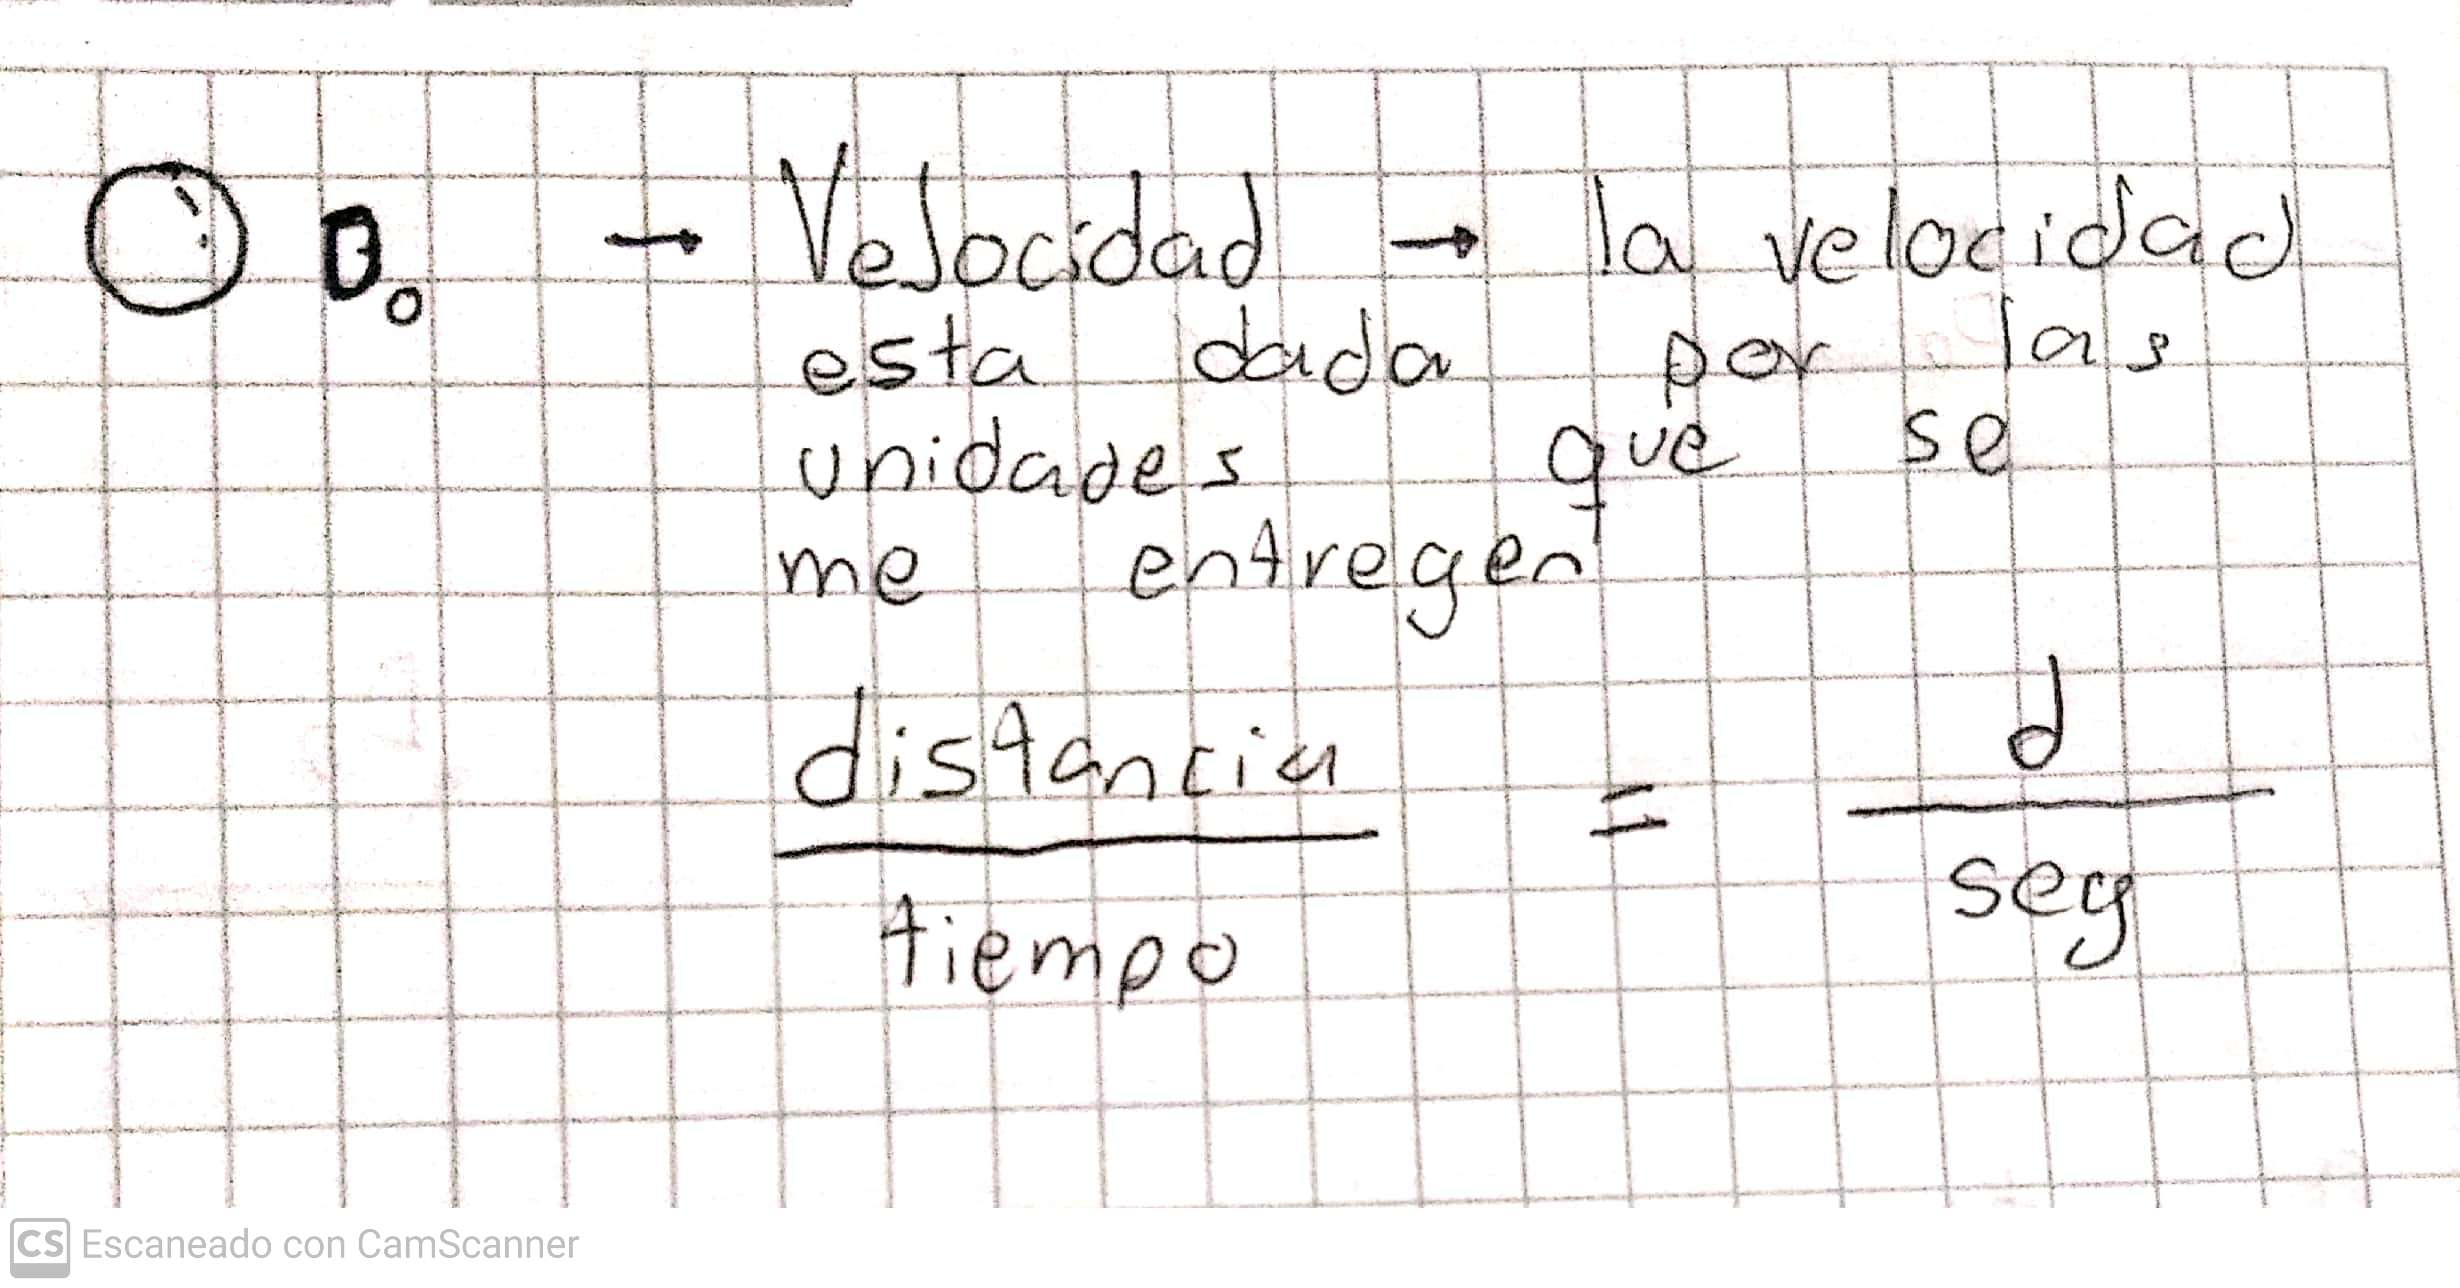 → Velocidad → la velocidad
esta dada por las
unidades que se
me entregen
distancia = d
tiempo seg
CS Escaneado con CamScanner